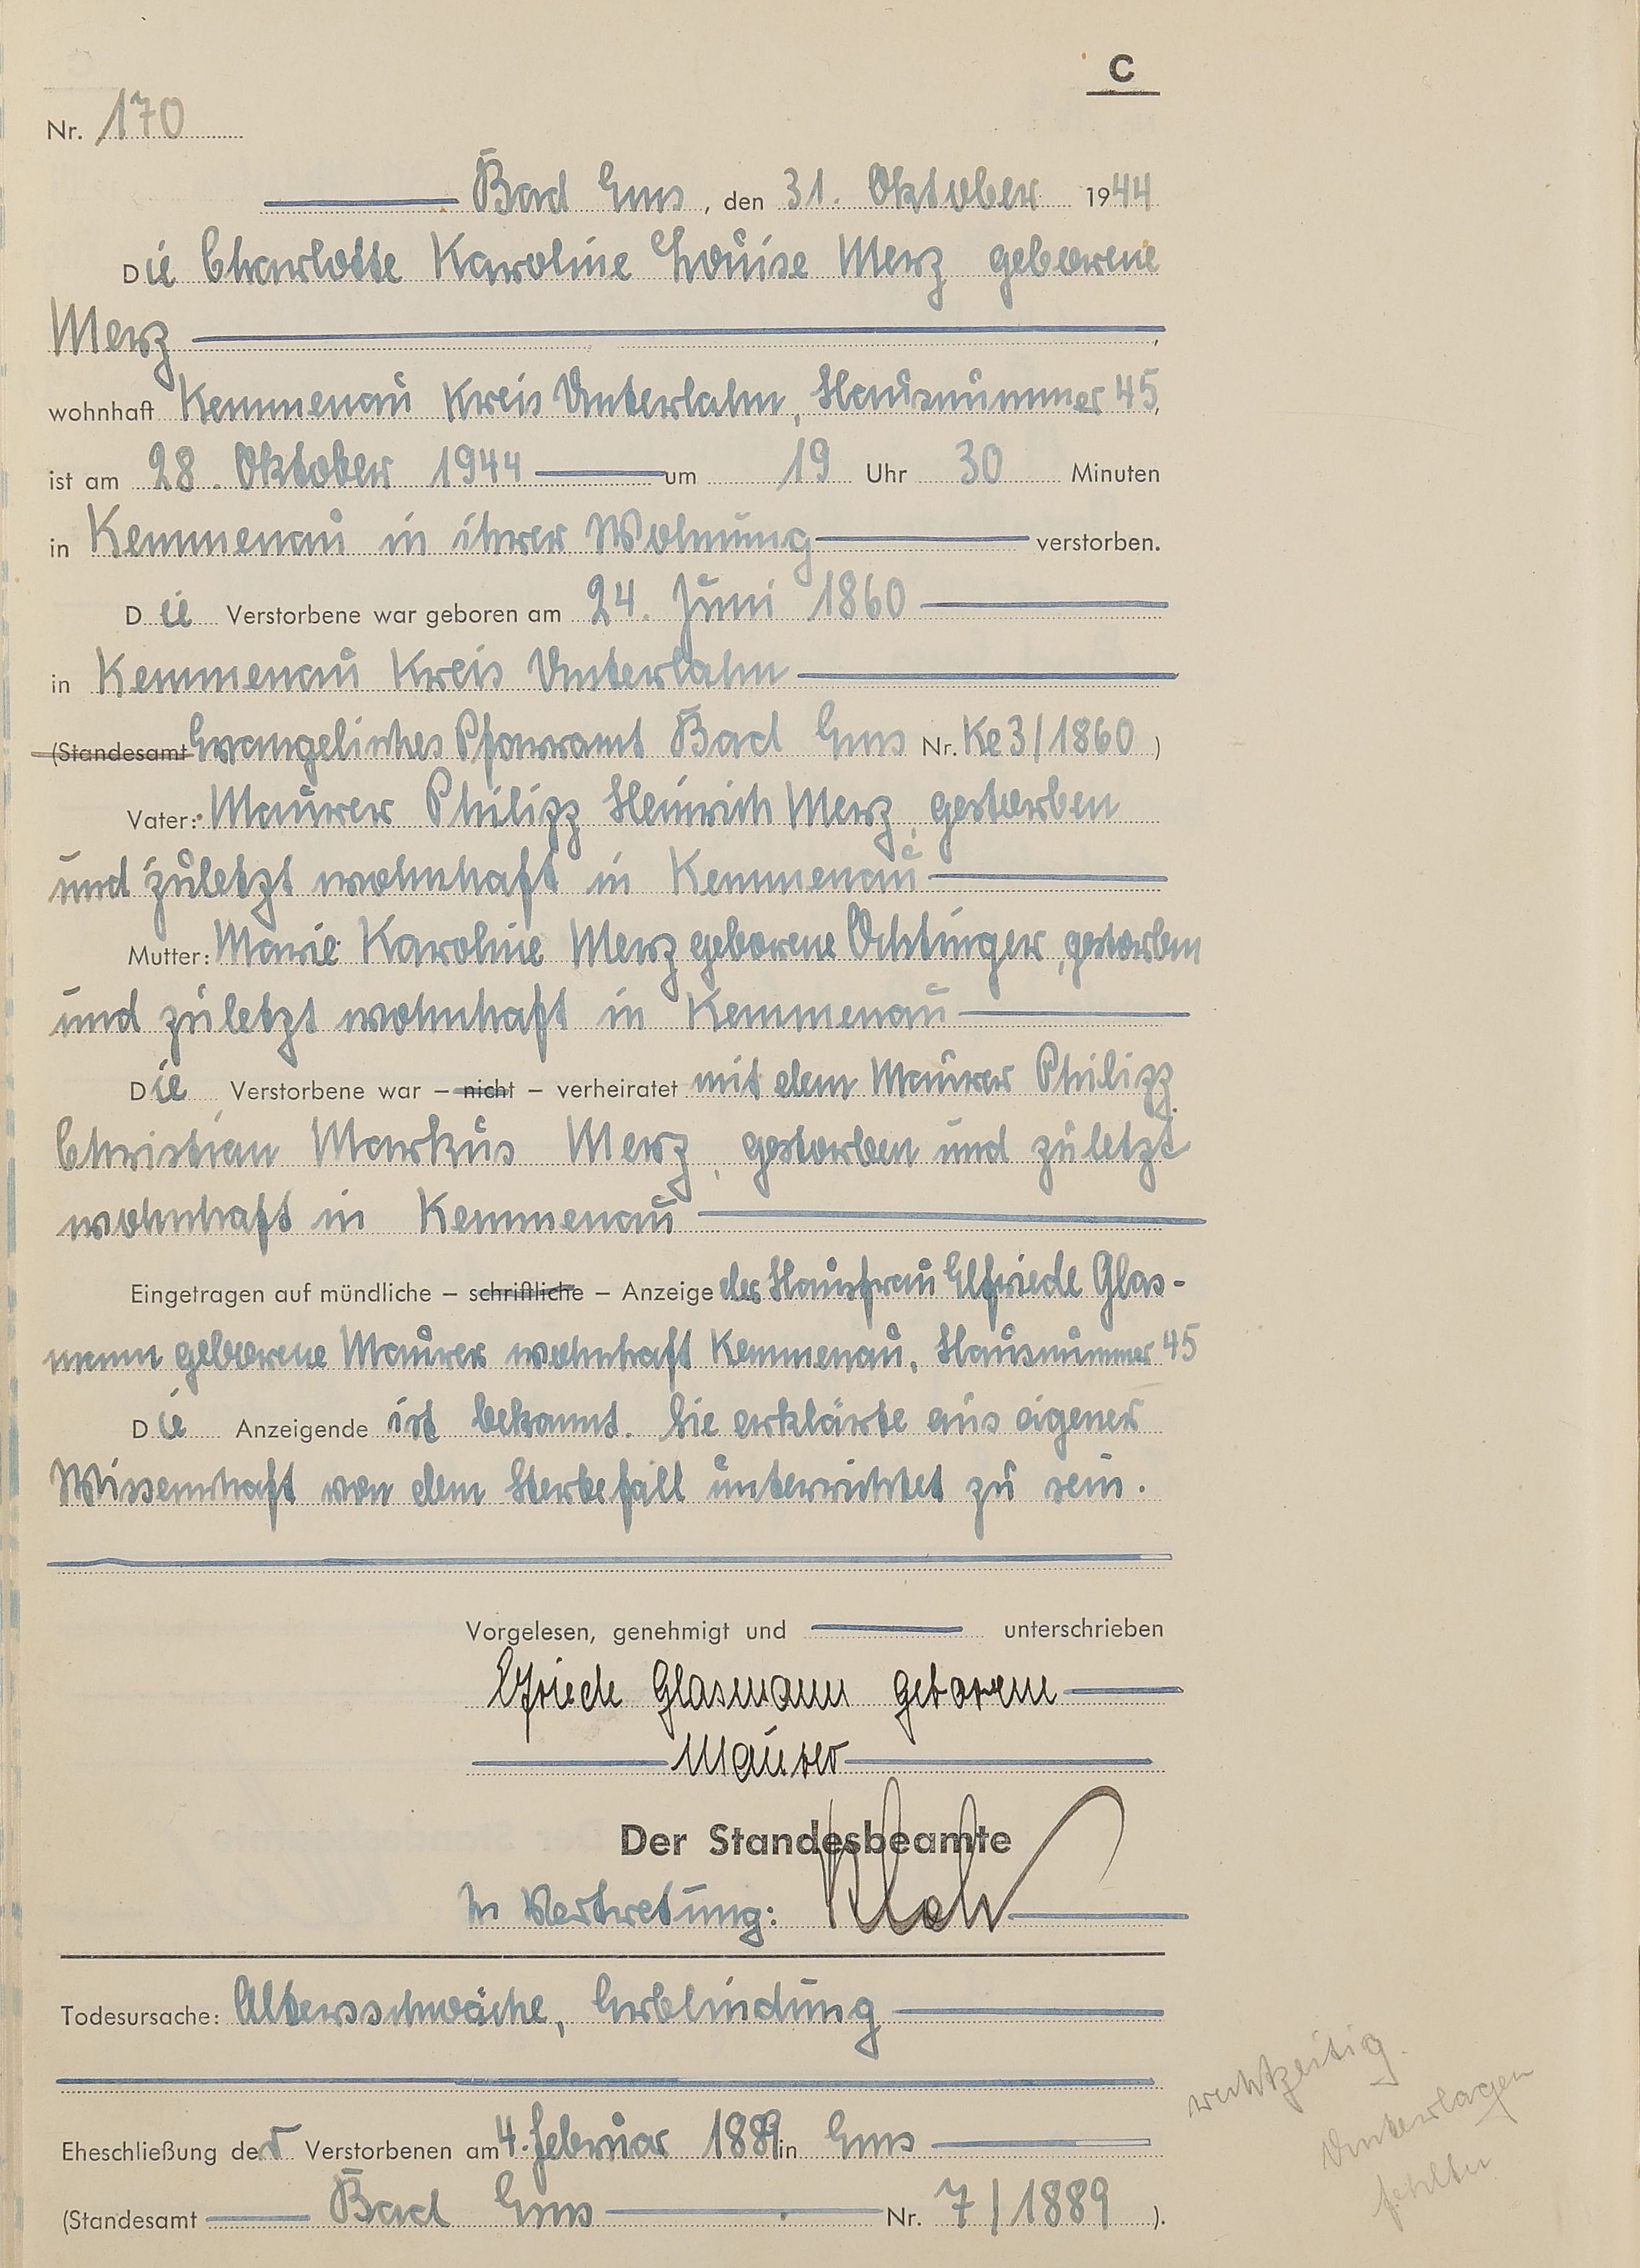 C
Nr. 170
Bad Ems, den 31. Oktober 1944
Die Charlotte Karoline Louise Merz geborene
Merz ,
wohnhaft Kemmenau Kreis Unterlahn, Hausnummer 45,
ist am 28. Oktober 1944 um 19 Uhr 30 Minuten
in Kemmenau in ihrer Wohnung verstorben.
Die Verstorbene war geboren am 24. Juni 1860
in Kemmenau Kreis Unterlahn
(Standesamt Evangelisches Pfarramt Bad Ems Nr. Ke 3/1860 )
Vater: Maurer Philipp Heinrich Merz, gestorben
und zuletzt wohnhaft in Kemmenau
Mutter: Marie Karoline Merz geborene Ochtinger, gestorben
und zuletzt wohnhaft in Kemmenau
Die Verstorbene war – nicht – verheiratet mit dem Maurer Philipp
Christian Markus Merz, gestorben und zuletzt
wohnhaft in Kemmenau
Eingetragen auf mündliche – schriftliche – Anzeige der Hausfrau Elfriede Glas-
mann geborene Maurer wohnhaft Kemmenau, Hausnummer 45
Die Anzeigende ist bekannt. Sie erklärte aus eigener
Wissenschaft von dem Sterbefall unterrichtet zu sein.
Vorgelesen, genehmigt und unterschrieben
Elfriede Glasmann geborene
Maurer
Der Standesbeamte
In Vertretung:
Todesursache: Altersschwäche, Erblindung
Eheschließung der Verstorbenen am 4. Februar 1889 in Ems
(Standesamt Bad Ems Nr. 7/1889 ).
rechtzeitig.
Unterlagen
fehlten